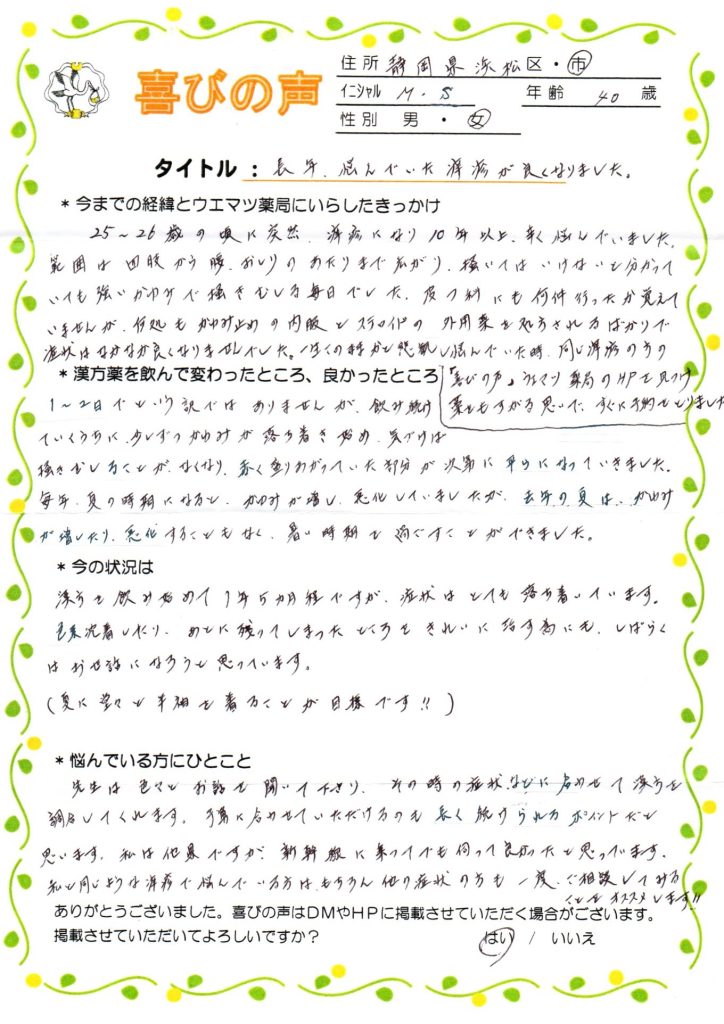 喜びの声
住所 静岡県浜松区・市
イニシャル M・S 年齢 40 歳
性別 男・女
タイトル : 長年、悩んでいた痒疹が良くなりました。
*今までの経緯とウエマツ薬局にいらしたきっかけ
25～26歳の頃に突然、痒疹になり10年以上、辛く悩んでいました。
範囲は四肢から腰、おしりのあたりまで広がり、掻いてはいけないと分かって
いても強いかゆみで掻きむしる毎日でした。皮フ科にも何件行ったか覚えて
いませんが、何処もかゆみ止めの内服とステロイドの外用薬を処方されるばかりで
症状はなかなか良くなりませんでした。 悩んでいた時、同じ痒疹の方の
「喜びの声」ウエマツ薬局のHPを見つけ
藁をもすがる思いで、すぐに予約をとりました
*漢方薬を飲んで変わったところ、良かったところ
1～2日でという訳ではありませんが、飲み続け
ていくうちに、少しずつかゆみが落ち着き始め、気づけば
掻きむしることがなくなり、赤く盛りあがっていた部分が次第に平らになっていきました。
毎年、夏の時期になると、かゆみが増し、悪化していましたが、去年の夏は、かゆみ
が増したり、悪化することもなく、暑い時期を過ごすことができました。
*今の状況は
漢方を飲み始めて1年5カ月程ですが、症状はとても落ち着いています。
色素沈着したり、あとに残ってしまったところをきれいに治す為にも、しばらく
はお世話になろうと思っています。
(夏に堂々と半袖を着ることが目標です!!)
*悩んでいる方にひとこと
先生は色々とお話を聞いて下さり、その時の症状などに合わせて漢方を
調合してくれます。予算に合わせていただけるのも長く続けられるポイントだと
思います。私は他県ですが、新幹線に乗ってでも伺って良かったと思っています。
私と同じような痒疹で悩んでいる方は、もちろん他の症状の方も一度、ご相談してみる
ことをオススメします!!
ありがとうございました。喜びの声はDMやHPに掲載させていただく場合がございます。
掲載させていただいてよろしいですか? はい / いいえ